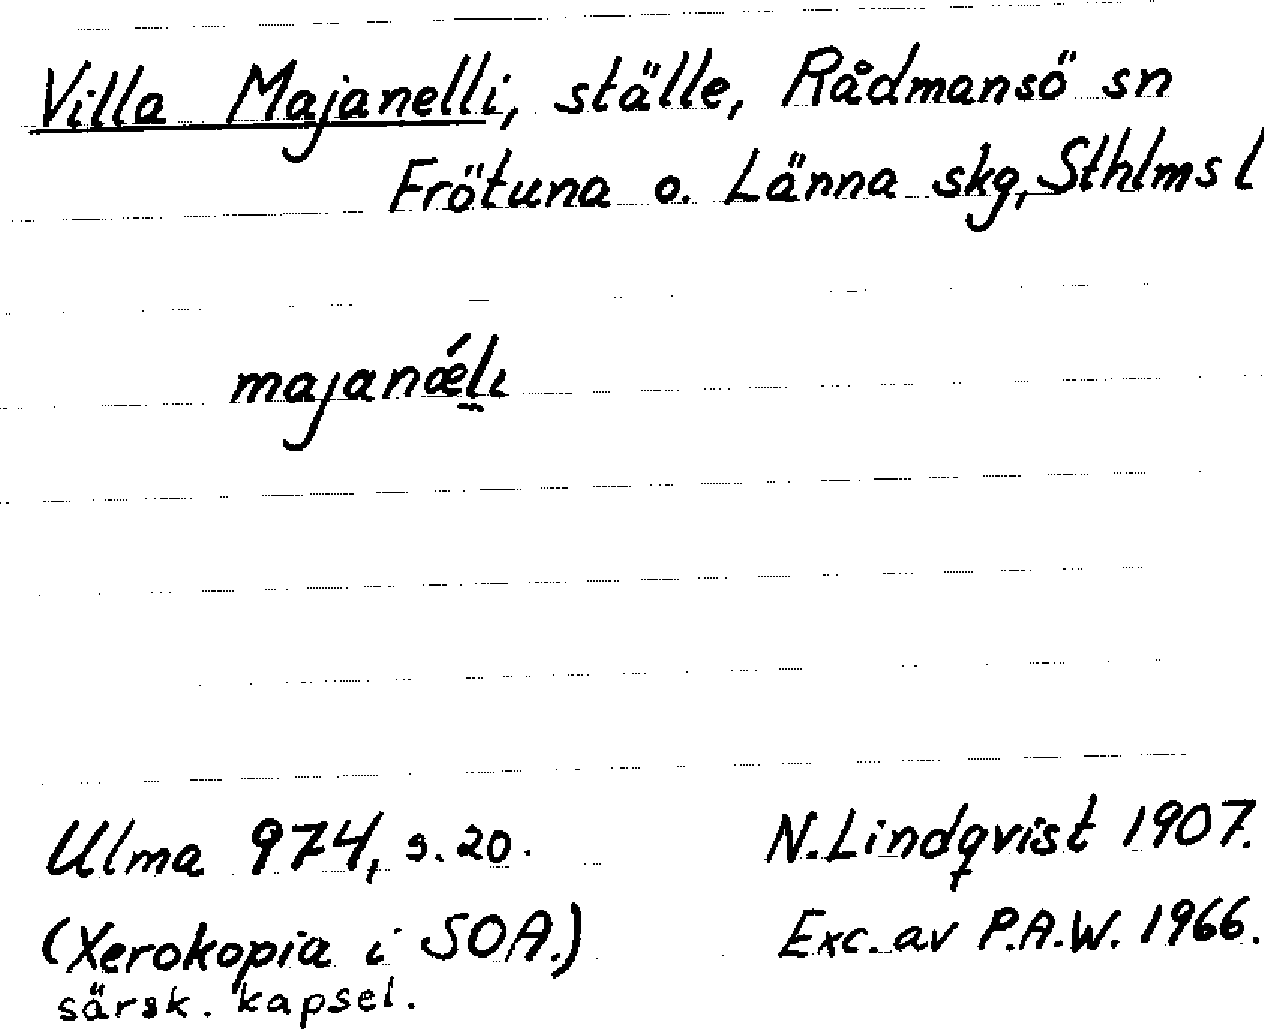 Villa Majanelli, ställe, Rådmansö sn
Frötuna o. Länna skg, Sthlms l
majanǽli
Ulma 974, s. 20.
N. Lindqvist 1907.
(Xerokopia i SOA.)
Exc. av P.A.W. 1966.
särsk. kapsel.